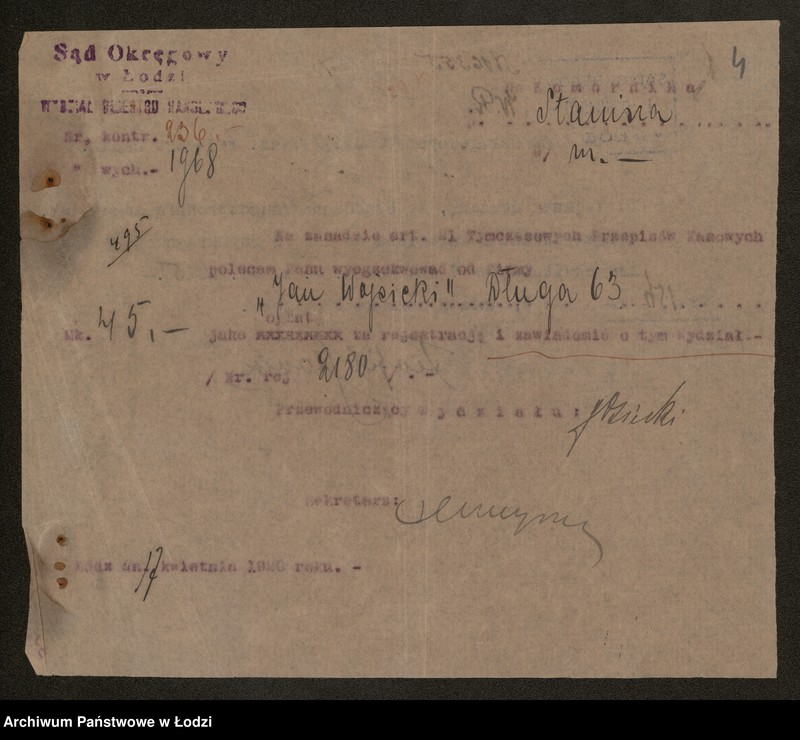 4
Sąd Okręgowy
w Łodzi
WYDZIAŁ REJESTRU HANDLOWEGO
Komornika
Nr. kontr. 236.-
" wych.- 1968
m. —
495
Na zasadzie art. 21 Tymczasowych Przepisów Kasowych
polecam Panu wyegzekwować od firmy
"Jan Wójcicki" Długa 63
Mk. 45,—
opłat
jako xxxxxxxxx za rejestrację i zawiadomić o tym Wydział.-
/ Nr. rej 2180 . -
Przewodniczący Wydziału:
Sekretarz:
Łódź dn. 17 kwietnia 1920 roku. -
Archiwum Państwowe w Łodzi